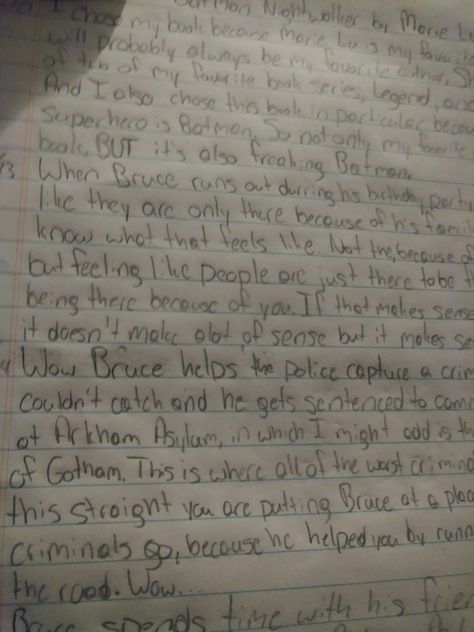 Batman Nightwalker by Marie Lu
I chose my book because Marie Lu is my favorite
will probably always be my favorite author. S
of two of my favorite book series, Legend, an
And I also chose this book in particular becau
Superhero is Batman. So not only my favorite
book, BUT it's also freaking Batman.
3 When Bruce runs out durring his birthday party
like they are only there because of his fami
know what that feels like. Not the, because of
but feeling like people are just there to be t
being there because of you. If that makes sense
it doesn't make alot of sense but it makes se
4 Wow Bruce helps the police capture a crim
couldn't catch and he gets sentenced to com
at Arkham Asylum, in which I might add is th
of Gotham. This is where all of the worst crimin
this straight you are putting Bruce at a plac
criminals go, because he helped you by runn
the road. Wow...
Bruce spends time with his frie